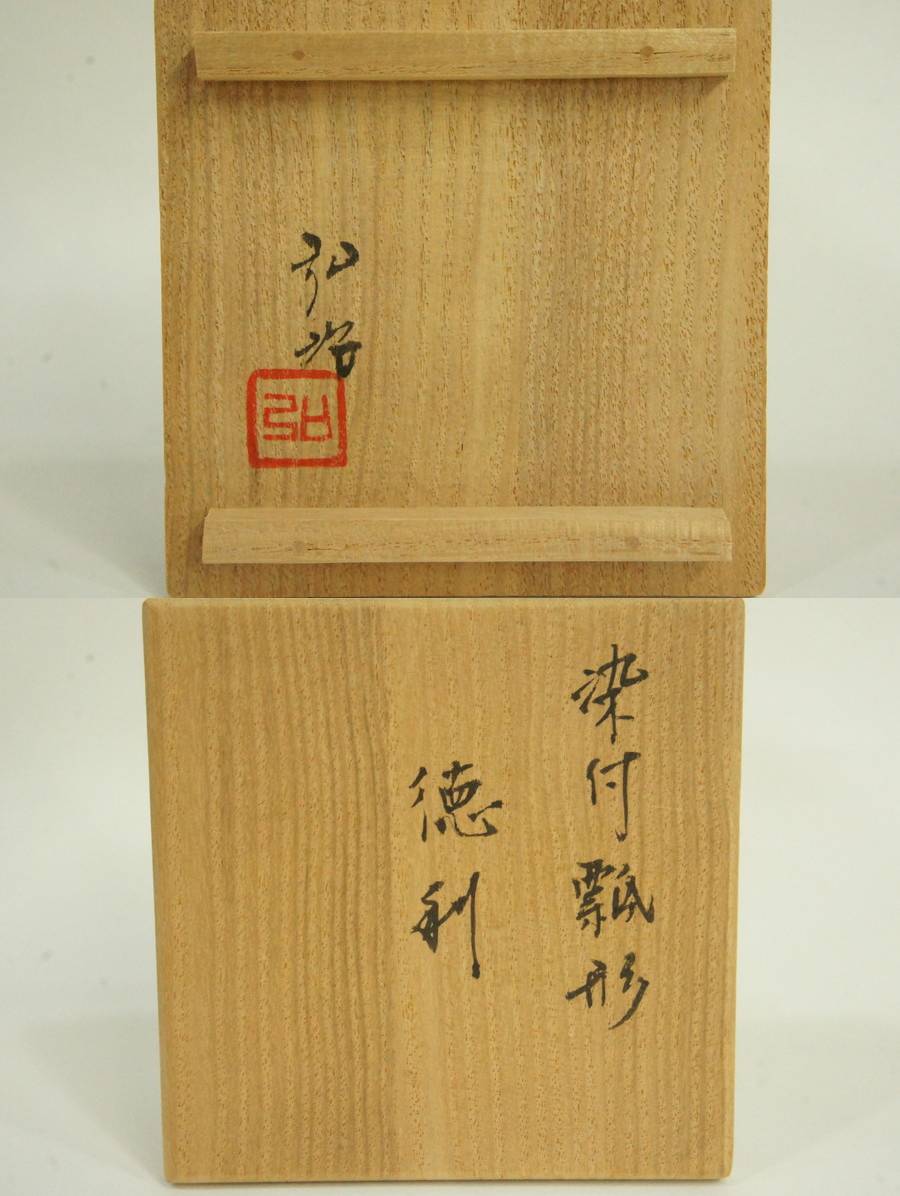 弘治
弘
染付瓢形
徳利